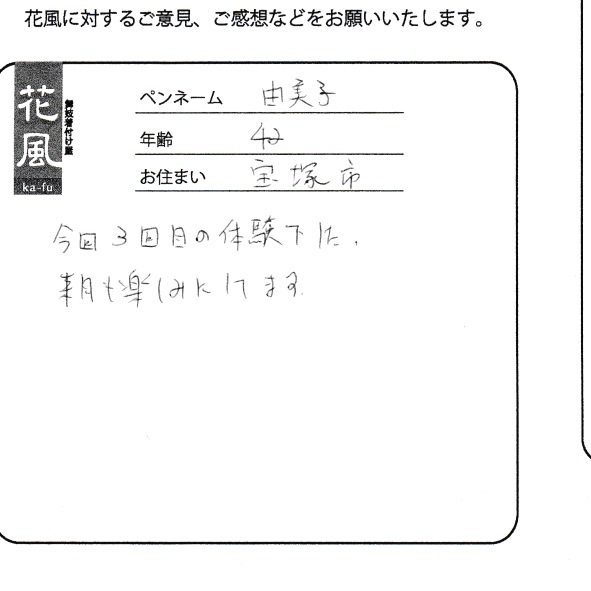 花風に対するご意見、ご感想などをお願いいたします。
花風
舞妓着付け屋
ka-fu
ペンネーム 由美子
年齢 42
お住まい 宝塚市
今回3回目の体験でした。
来月も楽しみにしてます。